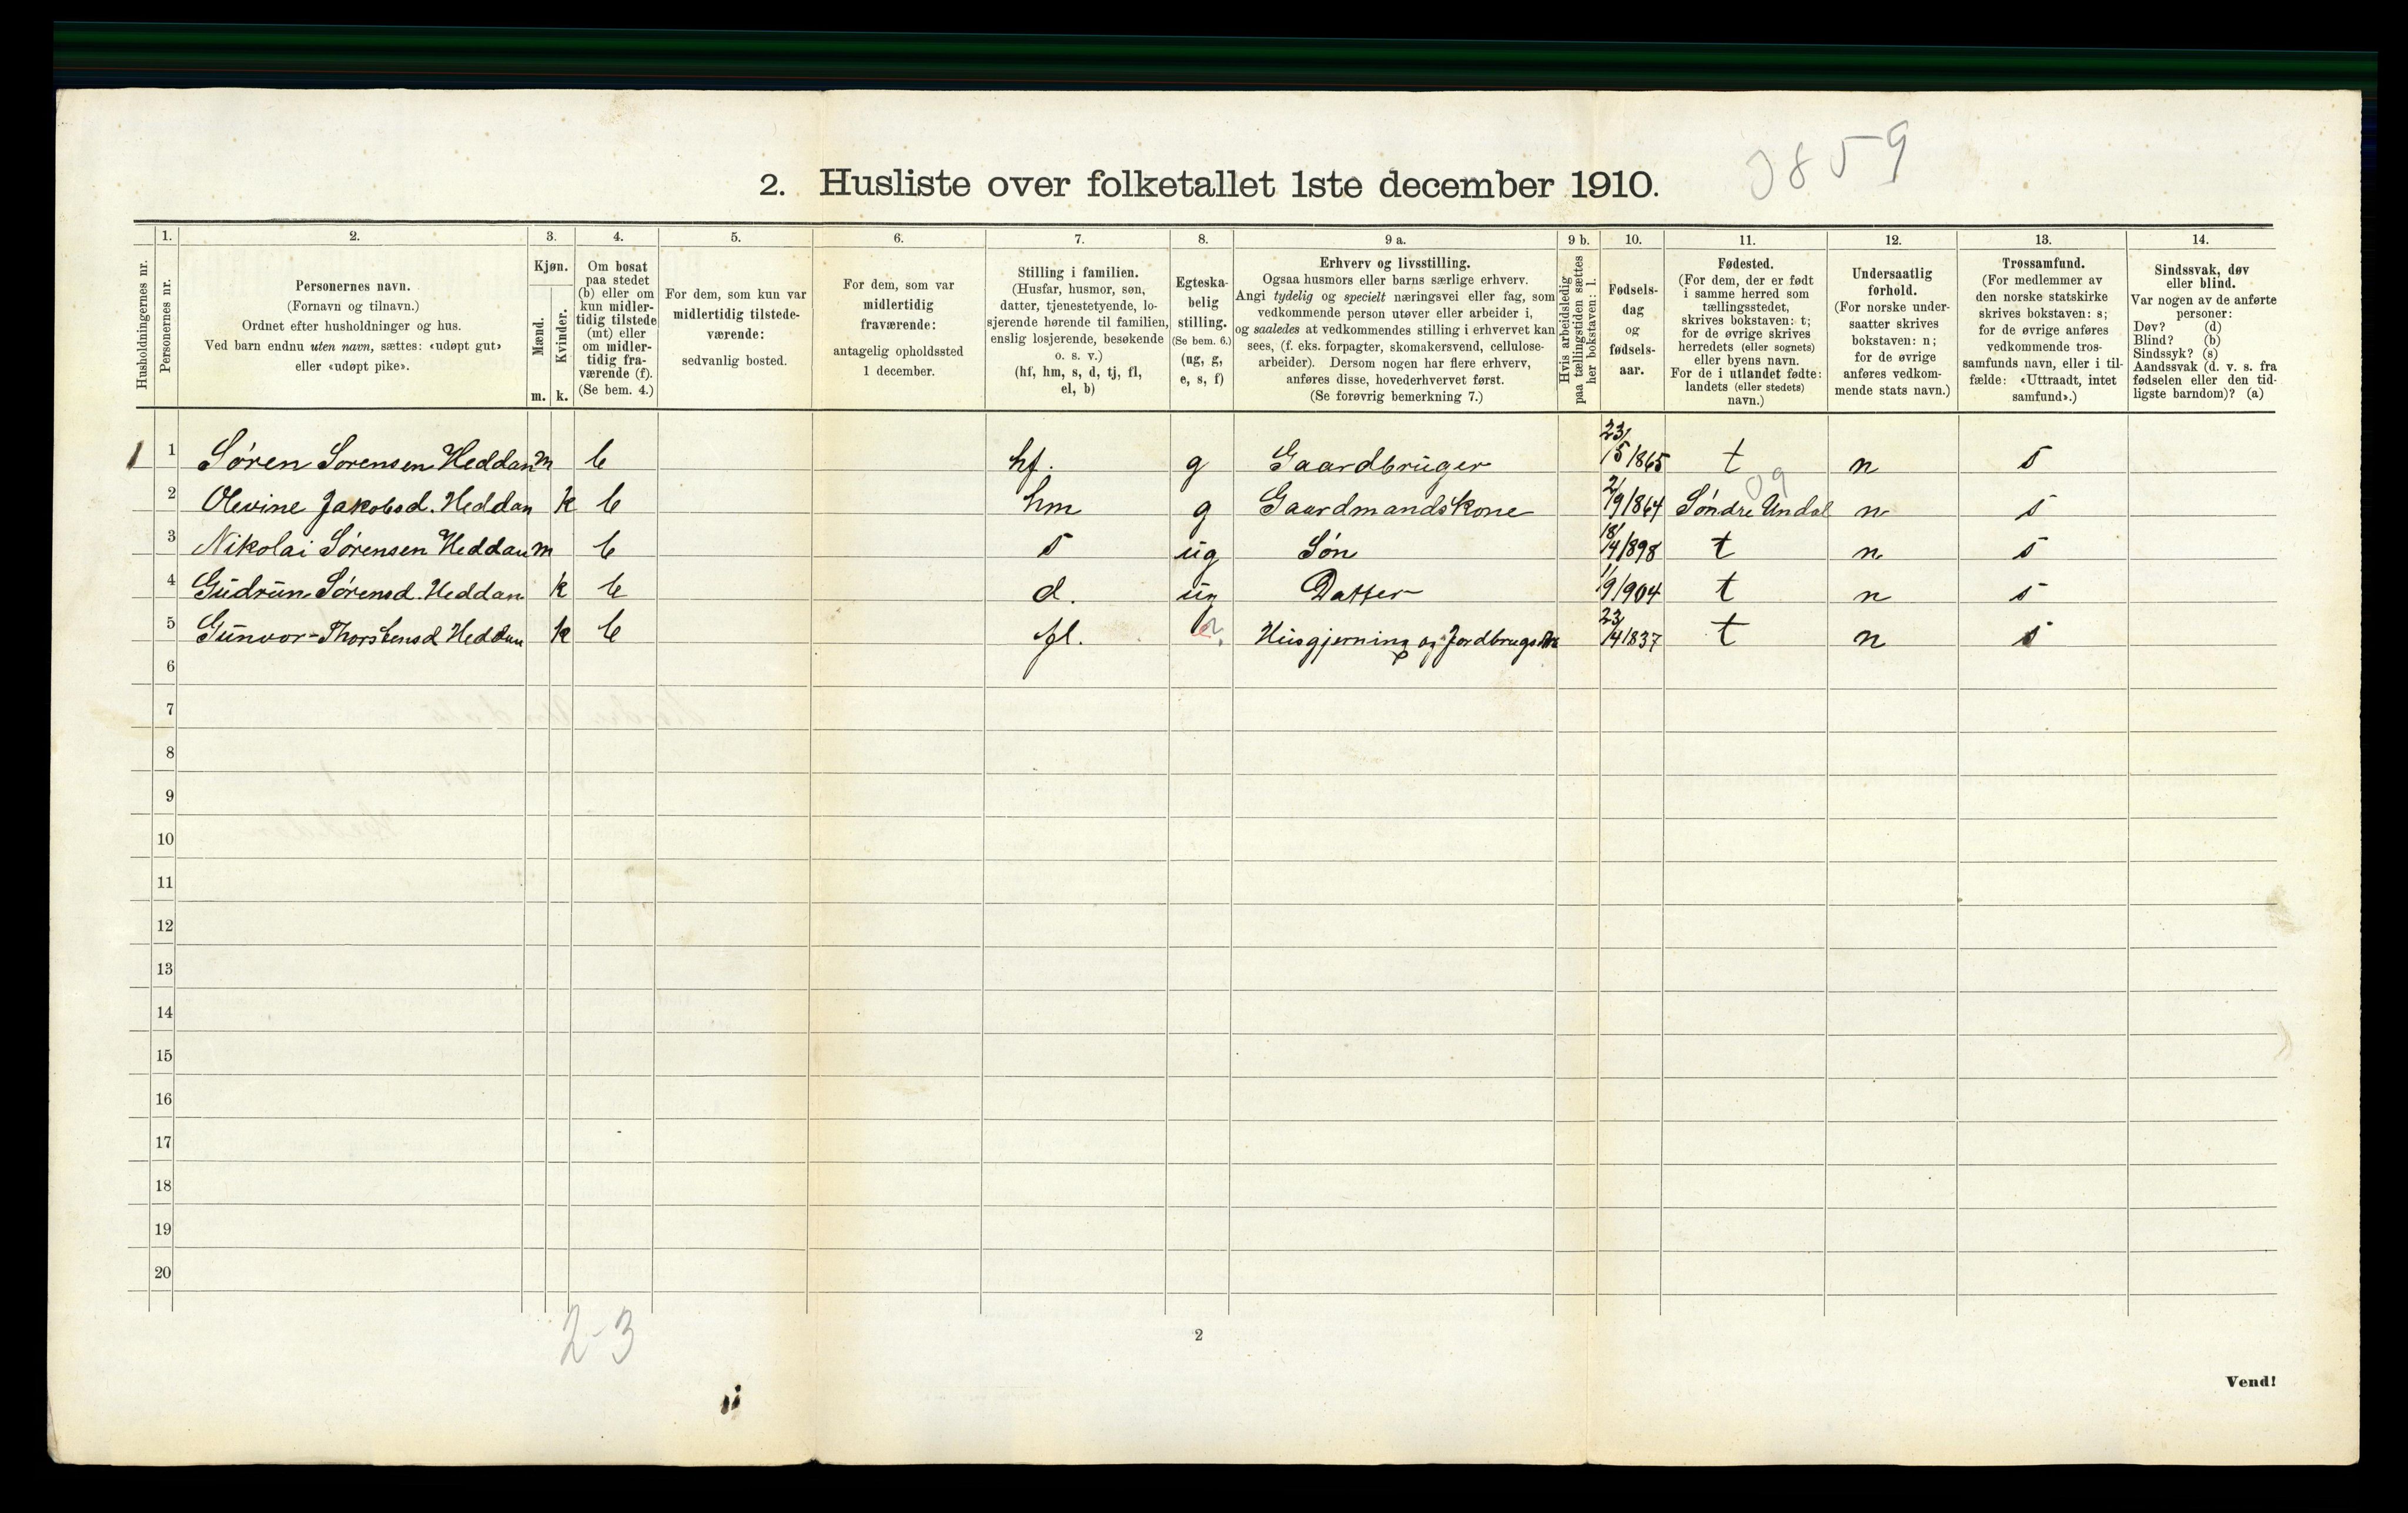 3859
2. Husliste over folketallet 1ste december 1910.
Husholdningernes nr.
1.
Personernes nr.
2.
Personernes navn.
(Fornavn og tilnavn.)
Ordnet efter husholdninger og hus.
Ved barn endnu uten navn, sættes: «udøpt gut»
eller «udøpt pike».
3.
Kjøn.
Mænd.
Kvinder.
m. k.
4.
Om bosat
paa stedet
(b) eller om
kun midler-
tidig tilstede
(mt) eller
om midler-
tidig fra-
værende (f).
(Se bem. 4.)
5.
For dem, som kun var
midlertidig tilstede-
værende:
sedvanlig bosted.
6.
For dem, som var
midlertidig
fraværende:
antagelig opholdssted
1 december.
7.
Stilling i familien.
(Husfar, husmor, søn,
datter, tjenestetyende, lo-
sjerende hørende til familien,
enslig losjerende, besøkende
o. s. v.)
(hf, hm, s, d, tj, fl,
el, b)
8.
Egteska-
belig
stilling.
(Se bem. 6.)
(ug, g,
e, s, f)
9 a.
Erhverv og livsstilling.
Ogsaa husmors eller barns særlige erhverv.
Angi tydelig og specielt næringsvei eller fag, som
vedkommende person utøver eller arbeider i,
og saaledes at vedkommendes stilling i erhvervet kan
sees, (f. eks. forpagter, skomakersvend, cellulose-
arbeider). Dersom nogen har flere erhverv,
anføres disse, hovederhvervet først.
(Se forøvrig bemerkning 7.)
9 b.
Hvis arbeidsledig
paa tællingstiden sættes
her bokstaven: l.
10.
Fødsels-
dag
og
fødsels-
aar.
11.
Fødested.
(For dem, der er født
i samme herred som
tællingsstedet,
skrives bokstaven: t;
for de øvrige skrives
herredets (eller sognets)
eller byens navn.
For de i utlandet fødte:
landets (eller stedets)
navn.)
12.
Undersaatlig
forhold.
(For norske under-
saatter skrives
bokstaven: n;
for de øvrige
anføres vedkom-
mende stats navn.)
13.
Trossamfund.
(For medlemmer av
den norske statskirke
skrives bokstaven: s;
for de øvrige anføres
vedkommende tros-
samfunds navn, eller i til-
fælde: «Uttraadt, intet
samfund».)
14.
Sindssvak, døv
eller blind.
Var nogen av de anførte
personer:
Døv? (d)
Blind? (b)
Sindssyk? (s)
Aandssvak (d. v. s. fra
fødselen eller den tid-
ligste barndom)? (a)
1 1 Søren Sorensen Heddan m b hf. g Gaardbruger 23/5 1865 t n s
09
2 Olevine Jakobsd. Heddan k b hm g Gaardmandskone 2/9 1864 Søndre Undal n s
3 Nikolai Sørensen Heddan m b s ug Søn 18/4 1898 t n s
4 Gudrun Sørensd. Heddan k b d. ug Datter 1/9 1904 t n s
5 Gunvor-Thorstensd Heddan k b fl. Husgjerning og Jordbrugs 23/4 1837 t n s
6
7
8
9
10
11
12
13
14
15
16
17
18
19
20
2-3
2
Vend!